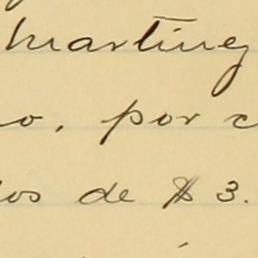 Martinez
o, por c
los de $ 3.